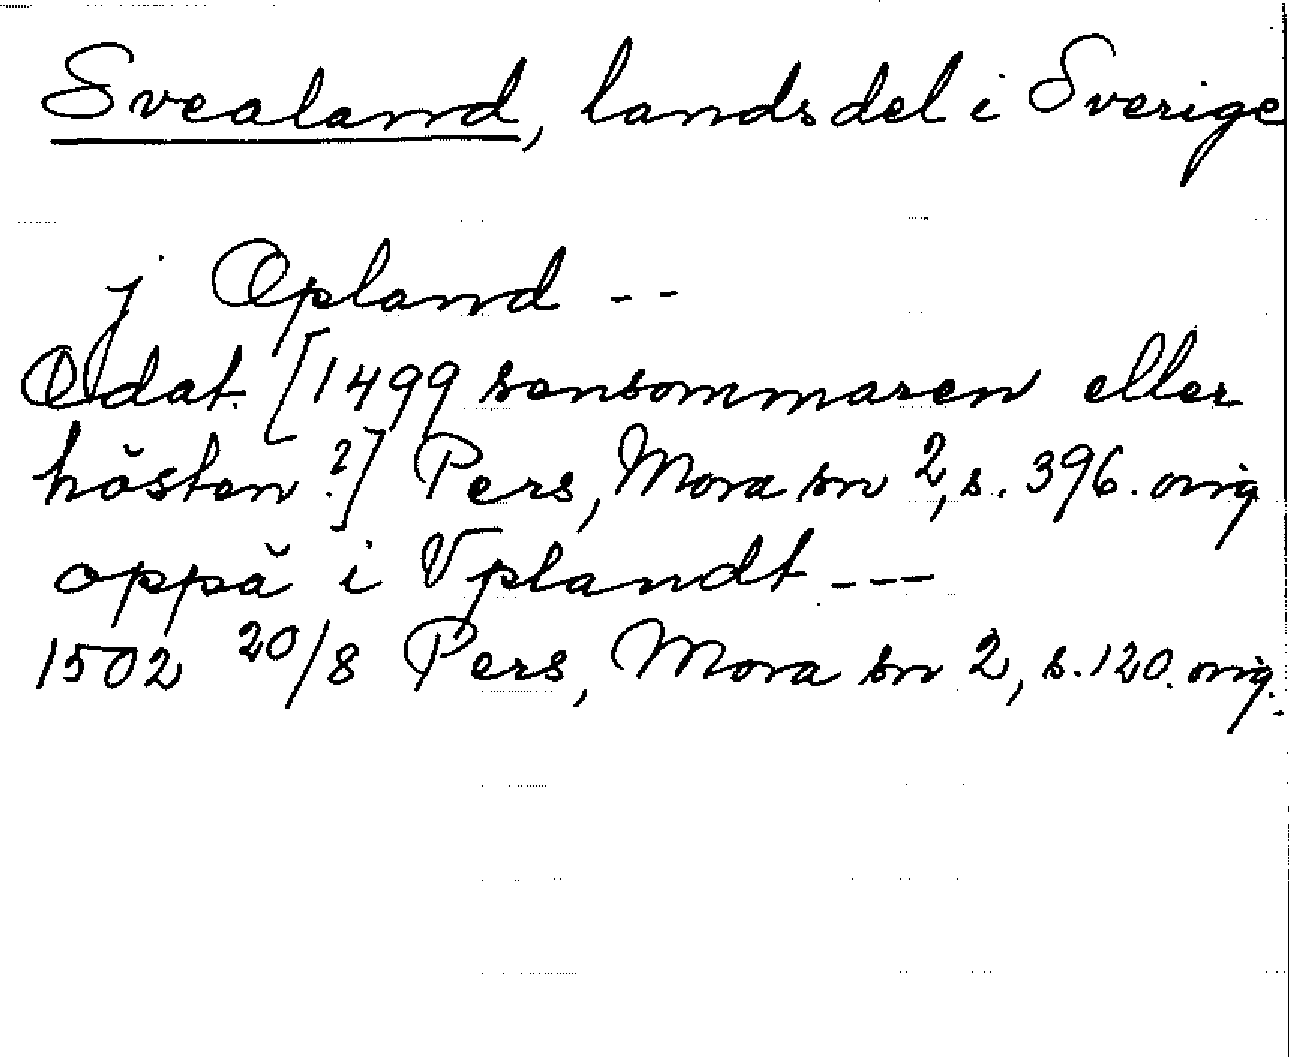 Svealand, landsdel i Sverige
j Opland --
Odat. [1499 sensommaren eller
hösten?] Pers, Mora sn 2, s. 396. orig
oppå i Vplandt ---
1502 20/8 Pers, Mora sn 2, s. 120. orig.